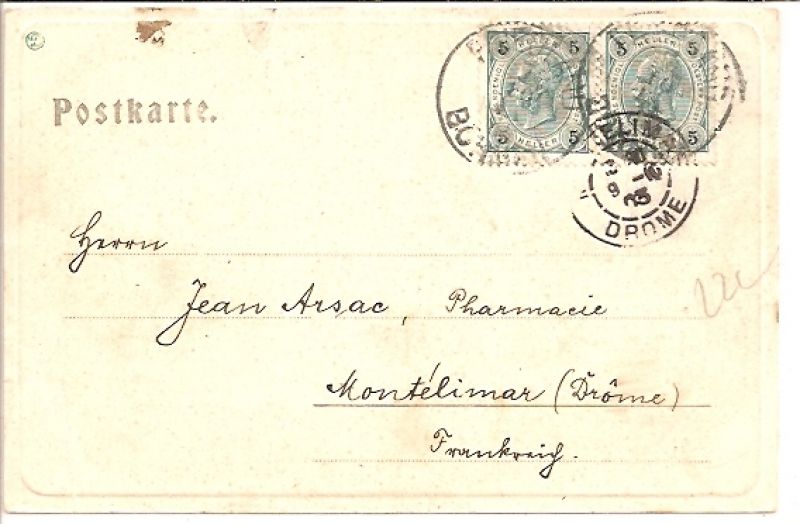 Postkarte.
5 HELLER 5
5 HELLER 5
5 HELLER 5
5 HELLER 5
DROME
Herrn
Jean Arsac, Pharmacie
Montélimar (Drôme)
Frankreich.